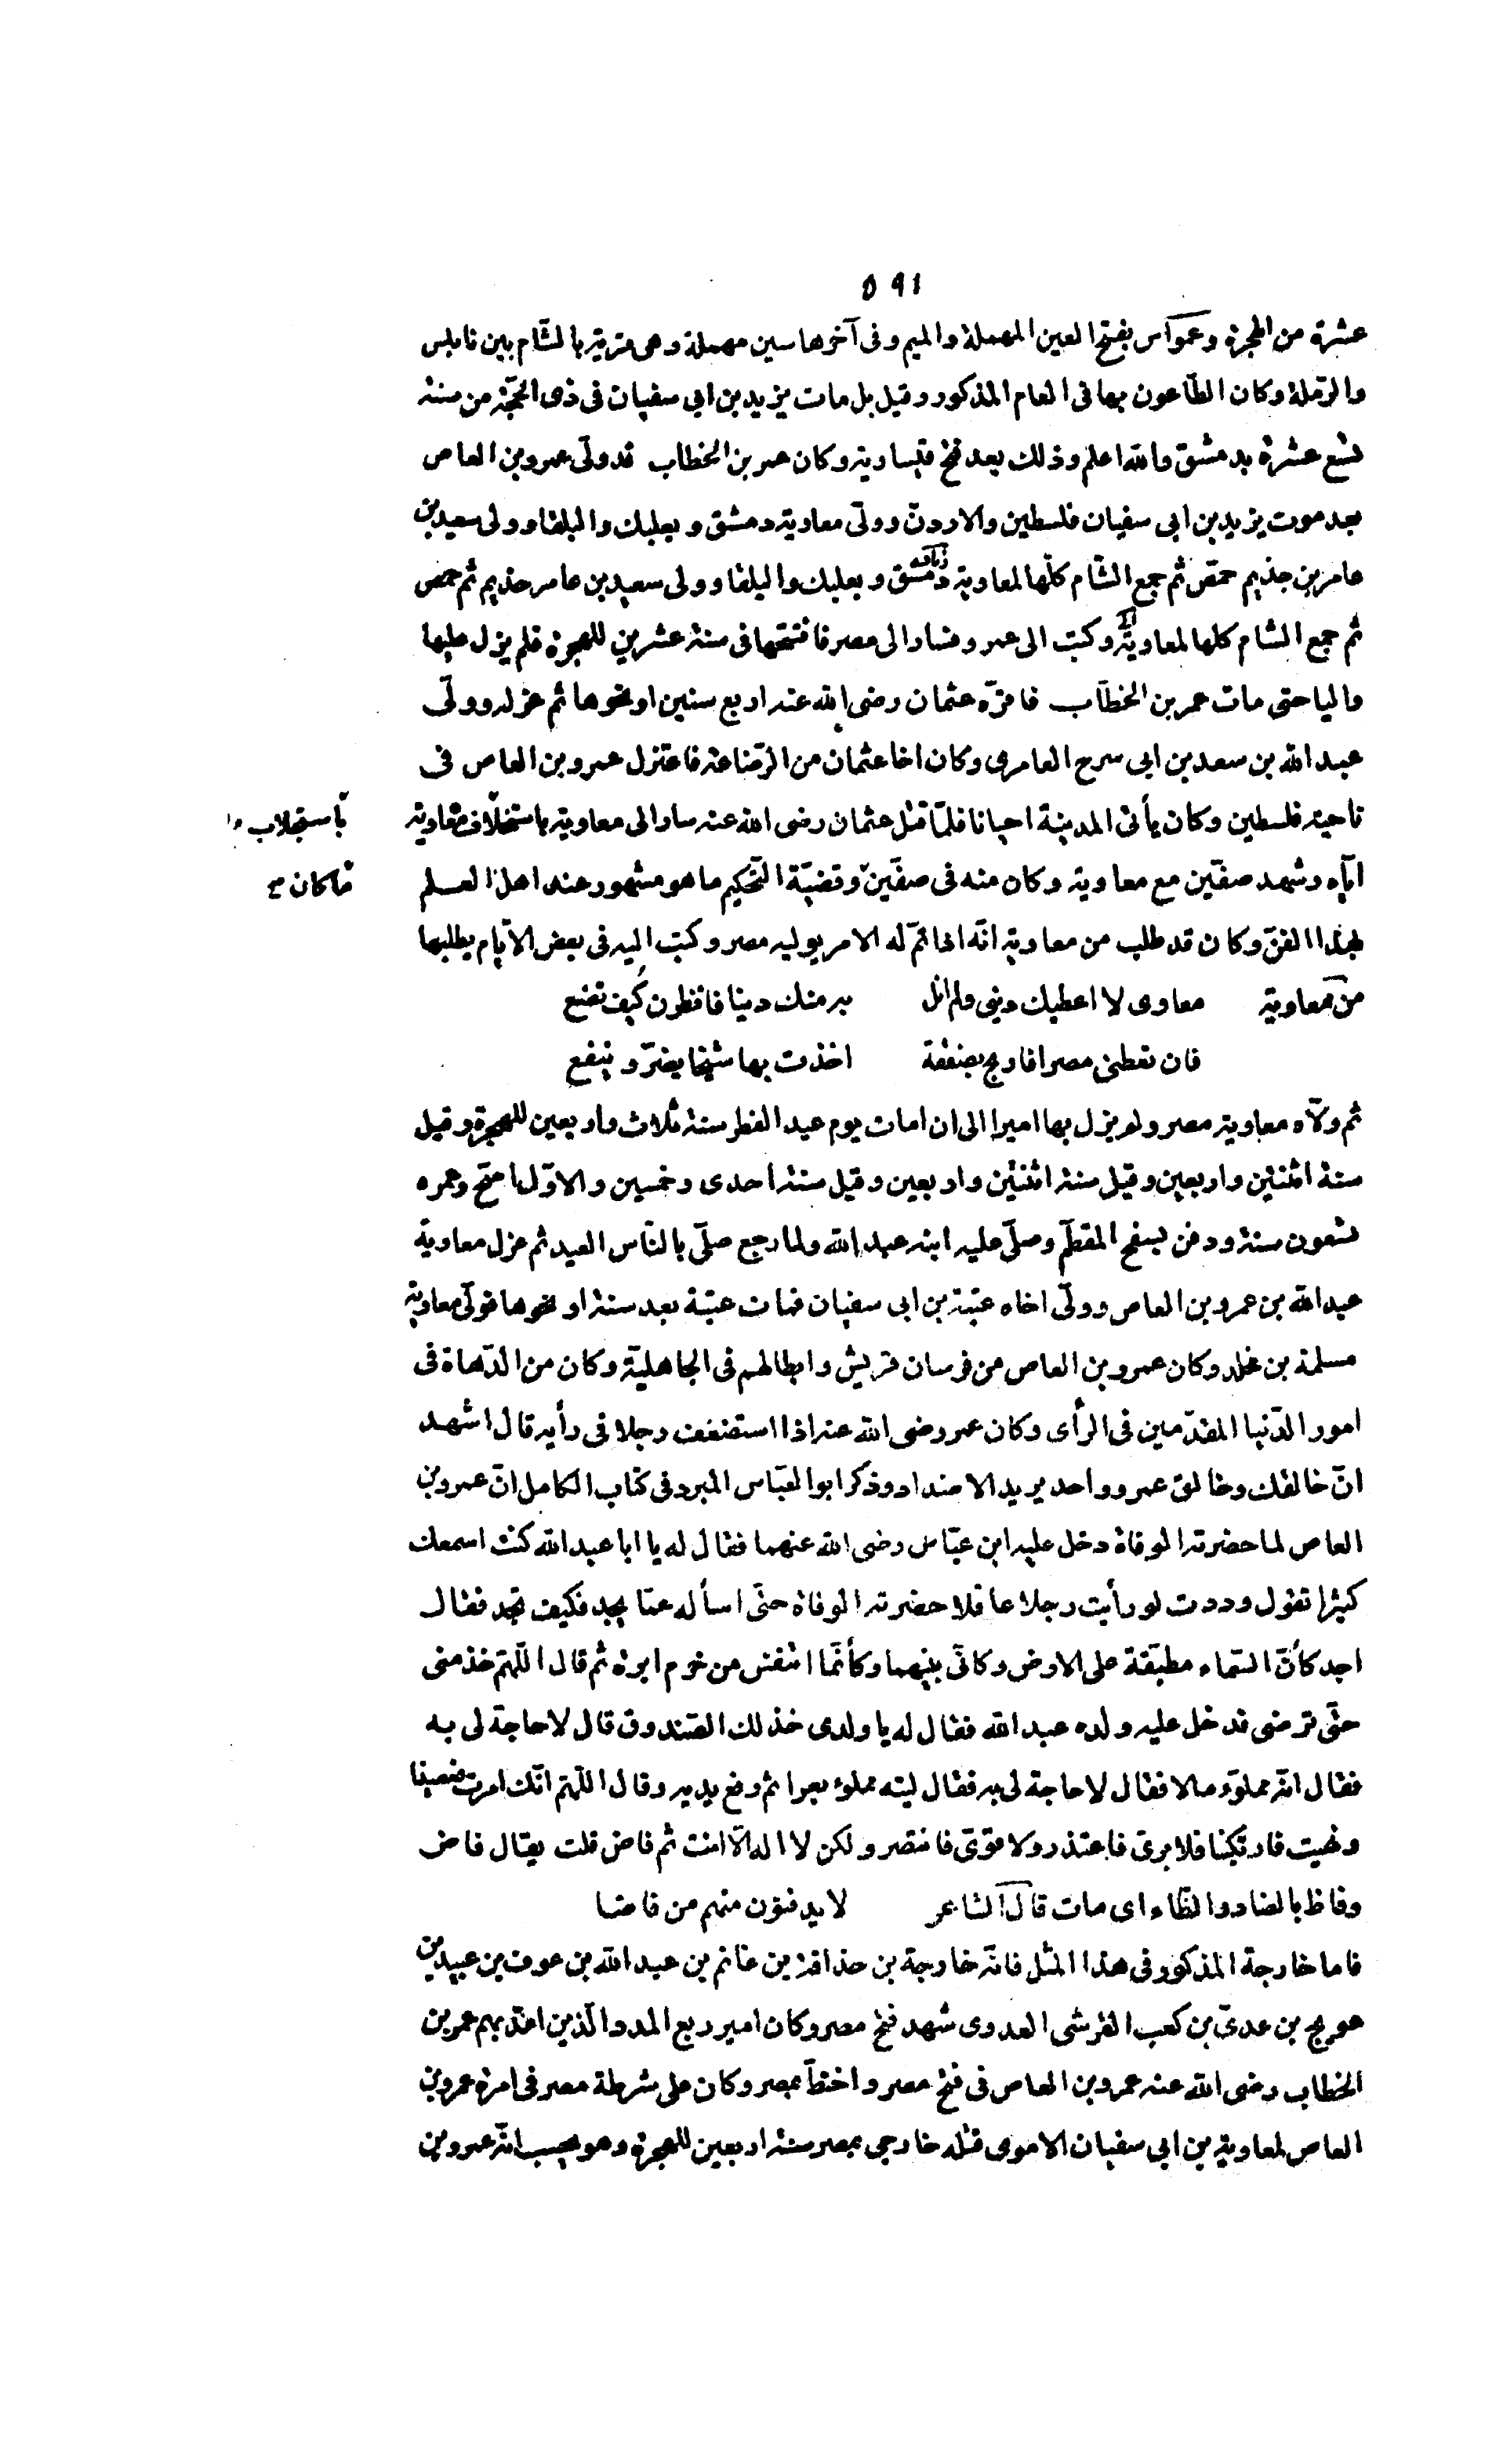 ٥٩١
عشرة من الهجرة وعمواس بفتح العين المهملة والميم وفى آخرها سين مهملة وهى قرية بالشّام بين نابلس
والرّملة وكان الطّاعون بها فى العام المذكور وقيل بل مات يزيد بن ابى سفيان فى ذى الحجّة من سنة
تسع عشرة بدمشق والله اعلم وذلك بعد فتح قيسارية وكان عمر بن الخطاب قد ولّى عمرو بن العاص
بعد موت يزيد بن ابى سفيان فلسطين والاردنّ وولّى معاوية دمشق وبعلبك والبلقا وولى سعيد بن
عامر بن جذيم حمص ثم جمع الشّام كلّها لمعاوية دمشق وبعلبك والبلقا وولى سعيد بن عامر حذيم ثم حمص
ثم جمع الشام كلها لمعاوية وكتب الى عمرو فسار الى مصر فافتتحها فى سنة عشرين للهجرة فلم يزل عليها
واليا حتى مات عمر بن الخطّاب فاقرّه عثمان رضى الله عنه اربع سنين او نحوها ثم عزله وولّى
عبد الله بن سعد بن ابى سرح العامرى وكان اخا عثمان من الرّضاعة فاعتزل عمرو بن العاص فى
ناحية فلسطين وكان يأتى المدينة احيانا فلمّا قتل عثمان رضى الله عنه سار الى معاوية باستخلاف معاوية
بأستجلاب
ايّاه وشهد صفّين مع معاوية وكان منه فى صفّين وقضيّة التّحكيم ما هو مشهور عند اهل العلم
ما كان
بهذا الفنّ وكان قد طلب من معاوية انّه اذا تمّ له الامر يوليه مصر وكتب اليه فى بعض الايّام يطلبها
من معاوية معاوى لا اعطيك دينى ولم انل به منك دينا فانظرن كيف تصنع
فان تعطنى مصرا فاربح بصفقة اخذت بها شيخا يضرّ وينفع
ثم ولّاه معاوية مصر ولم يزل بها اميرا الى ان امات يوم عيد الفطر سنة ثلاث واربعين للهجرة وقيل
سنة اثنتين واربعين وقيل سنة اثنتين واربعين وقيل سنة احدى وخمسين والاوّل اصحّ وعمره
تسعون سنة ودفن بسفح المقطّم وصلّى عليه ابنه عبد الله ولما رجع صلّى بالنّاس العيد ثم عزل معاوية
عبد الله بن عمرو بن العاص وولّى اخاه عتبة بن ابى سفيان فمات عتبة بعد سنة او نحوها فولّى معاوية
مسلمة بن مخلد وكان عمرو بن العاص من فرسان قريش وابطالهم فى الجاهليّة وكان من الدّهاة فى
امور الدّنيا المقدّمين فى الرأى وكان عمر رضى الله عنه اذا استضعف رجلا فى رأيه قال اشهد
انّ خالقك وخالق عمرو واحد يريد الاضداد وذكر ابو العبّاس المبرد فى كتاب الكامل انّ عمرو بن
العاص لما حضرته الوفاة دخل عليه ابن عبّاس رضى الله عنهما فقال له يا ابا عبد الله كنت اسمعك
كثيرا تقول وددت لو رأيت رجلا عاقلا حضرته الوفاة حتّى اسأله عمّا يجد فكيف تجد فقال
اجد كأنّ السّماء مطبقة على الارض وكانّى بينهما وكأنّما اتنفّس من خرم ابرة ثم قال اللّهمّ خذ منى
حتّى ترضى فدخل عليه ولده عبد الله فقال له يا ولدى خذ ذلك الصّندوق قال لا حاجة لى به
فقال انّه مملوّ مالا فقال لا حاجة لى به فقال ليته مملوء بعرا ثم رفع يديه وقال اللّهمّ انّك امرت فعصينا
ونهيت فارتكبنا فلا برىّ فاعتذر ولا قوىّ فانتصر ولكن لا اله الّا انت ثم فاض قلت يقال فاض
وفاظ بالضاد والظّاء اى مات قال الشاعر لا يدفنون منهم من فاضا
فاما خارجة المذكور فى هذا المثل فانّه خارجة بن حذافة بن غانم بن عبد الله بن عوف بن عبيد بن
عويج بن عدىّ بن كعب القرشى العدوى شهد فتح مصر وكان امير ربع المدد الّذين امدّ بهم عمر بن
الخطاب رضى الله عنه عمرو بن العاص فى فتح مصر واختطّ بمصر وكان على شرطة مصر فى امرة عمرو بن
العاص لمعاوية بن ابى سفيان الاموى قتله خارجى بمصر سنة اربعين للهجرة وهو يحسب انّه عمرو بن